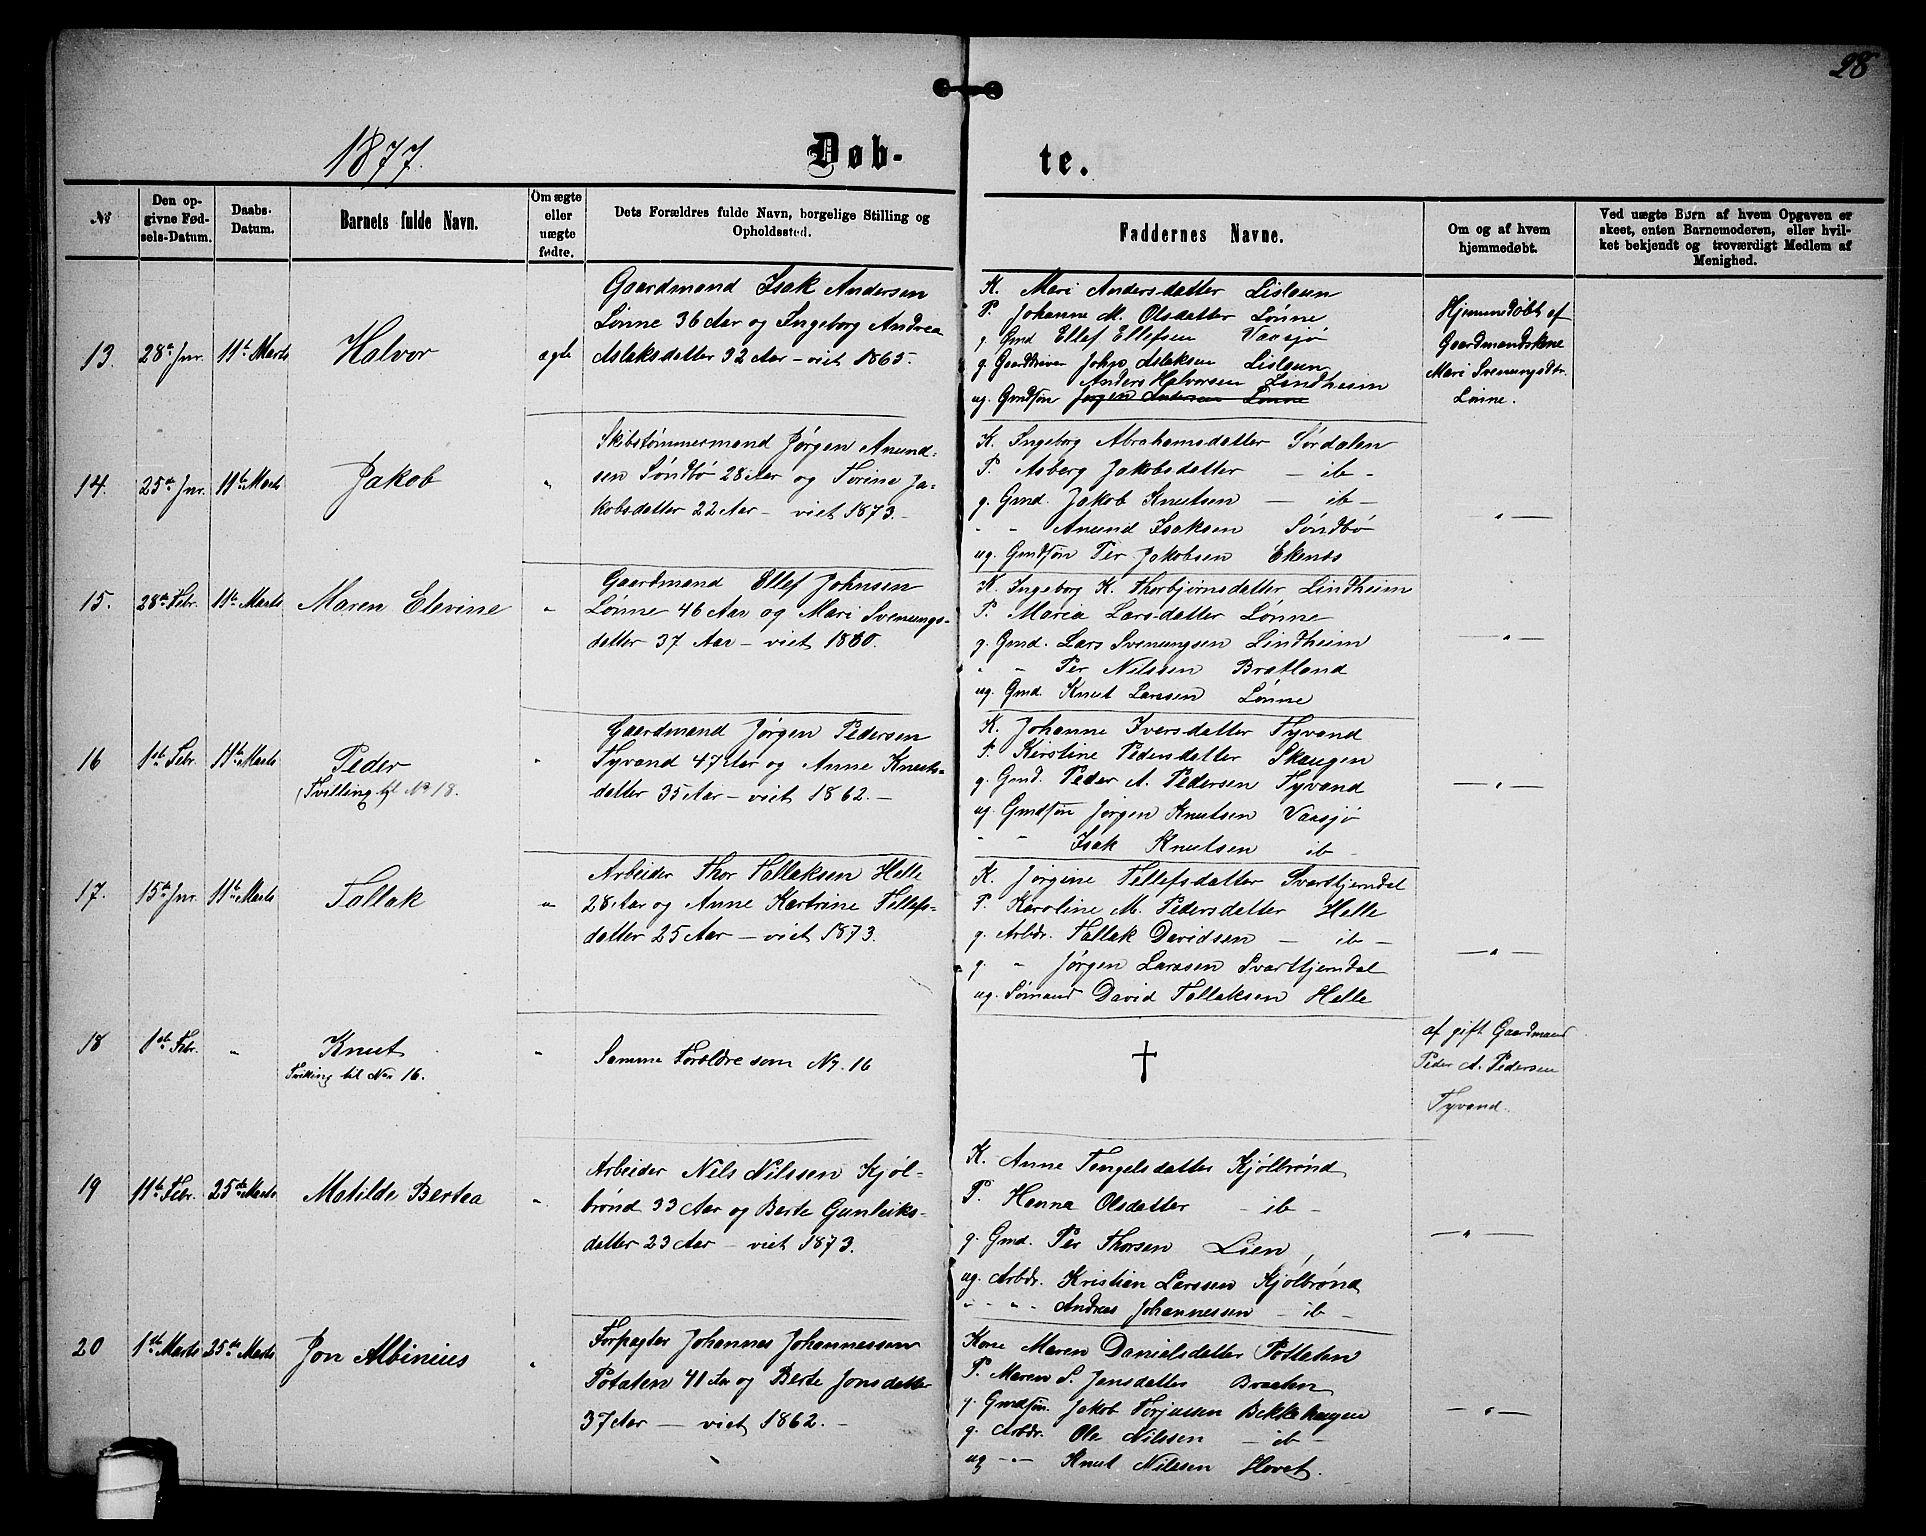 28
1877.
Døb-
te.
№
Den op-
givne Fød-
sels-Datum.
Daabs-
Datum.
Barnets fulde Navn.
Om ægte
eller
uægte
fødte.
Dets Forældres fulde Navn, borgelige Stilling og
Opholdssted.
Faddernes Navne.
Om og af hvem
hjemmedøbt.
Ved uægte Børn af hvem Opgaven er
skeet, enten Barnemoderen, eller hvil-
ket bekjendt og troværdigt Medlem af
Menighed.
13. 28de Jnr. 11te Marts Halvor ægte
Gaardmand Isak Andersen
Lønne 36 Aar og Ingeborg Andrea
Aslaksdatter 32 Aar – viet 1865.
K. Mari Andersdatter Lislaun
P. Johanne M. Olsdatter Lønne
g. Gmd Ellef Ellefsen Vassjø
g. Gaardbruger John Aslaksen Lislaun
Anders Halvorsen Lindheim
ug. Gmdsøn Jørgen Andersen Lønne
Hjemmedöbt af
Gaardmandskone
Mari Svenungsdtr.
Lönne.
14. 25de Jnr. 11te Marts Jakob "
Skibstømmermand Jørgen Anund-
sen Söndbö 28 Aar og Torine Ja-
kobsdatter 22 Aar – viet 1873. –
K. Ingeborg Abrahamsdatter Sördalen
P. Asberg Jakobsdatter – ib –
g. Gmd. Jakob Knutsen – ib –
" " Anund Isaksen Söndbø
ug. Gmdsøn Per Jakobsen Ekenes
– " –
15. 28de Febr. 11te Marts Maren Elevine "
Gaardmand Ellef Johnsen
Lønne 46 Aar og Mari Svenungs-
datter 37 Aar – viet 1860.
K. Ingeborg K. Thorbjørnsdatter Lindheim
P. Maria Larsdatter Lønne
g. Gmd. Lars Svenungsen Lindheim
" " Per Nilssen Bratland
ug. Gmd. Knut Larssen Lønne
– " –
16 1ste Febr. 11te Marts Peder "
(Tvilling til No 18.
Gaardmand Jørgen Pedersen
Tyvand 47 Aar og Anne Knuts-
datter 35 Aar – viet 1862. –
K. Johanne Iversdatter Tyvand
P. Kirstine Pedersdatter Skaugen
g. Gmd. Peder A. Pedersen Tyvand
ug. Gmdsøn Jørgen Knutsen Vassjø
" " Isak Knutsen ib –
– " –
17. 15de Jnr. 11te Marts Tallak "
Arbeider Thor Tallaksen Helle
28 Aar og Anne Kartrine Tellefs-
datter 25 Aar – viet 1873.
K. Jørgine Tellefsdatter Svarttjerndal
P. Karoline M. Pedersdatter Helle
g. Arbdr. Tallak Davidsen – ib –
g. " Jørgen Larssen Svarttjerndal
ug. Sømand David Tallaksen Helle
– " –
18 1ste Febr. " Knut "
Tvilling til Nor 16.
Samme Forældre som Nr. 16
†
af gift Gaardmand
Peder A. Pedersen
Tyvand.
19 11te Febr. 25de Marts Matilde Bertea "
Arbeider Nels Nilssen Kjøl-
brønd 33 Aar og Berte Gunleiks-
datter 23 Aar – viet 1873.
K. Anne Tengelsdatter Kjølbrønd
P. Hanna Olsdatter – ib –
g. Gmd. Per Thorsen Lien
ug. Arbdr. Kristian Larssen Kjølbrønd
" " " Andreas Johannessen – ib –
– " –
20 1ste Marts 25de Marts Jon Albinius "
Forpagter Johannes Johannessen
Potaten 41 Aar og Berte Jonsdatter
37 Aar – viet 1862. –
Kone Maren Danielsdatter Pottaten
P. Maren S. Jensdatter Braaten
g. Gmdsøn. Jakob Torjussen Bekkehaugen
g. Arbdr. Ole Nilssen – ib –
ug – " – Knut Nilssen Hovet.
– " –